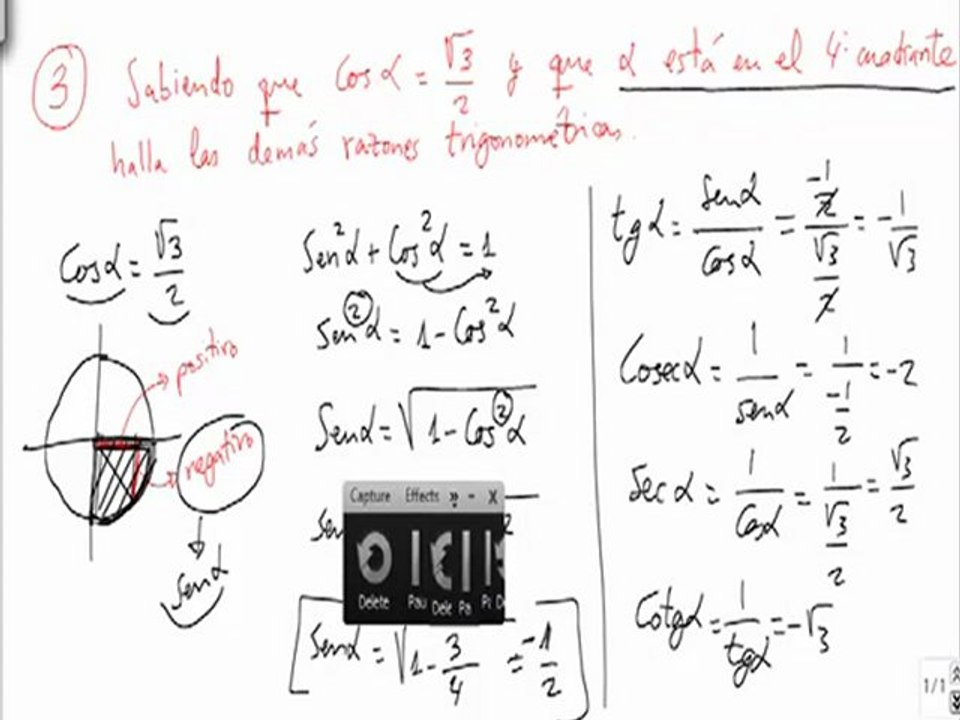 3 Sabiendo que Cosα = √3/2 y que α está en el 4º cuadrante
halla las demás razones trigonométricas.
Cosα = √3/2
positivo
negativo
senα
Sen²α + Cos²α = 1
Sen²α = 1 - Cos²α
Senα = √(1 - Cos²α)
Sen
Capture Effects » - x
Delete Pau Dele Pa
Senα = √(1 - 3/4) = -1/2
tgα = senα/cosα = (-1/2)/(√3/2) = -1/√3
Cosecα = 1/senα = 1/(-1/2) = -2
Sec α = 1/Cosα = 1/(√3/2) = √3/2
Cotgα = 1/tgα = -√3
1/1